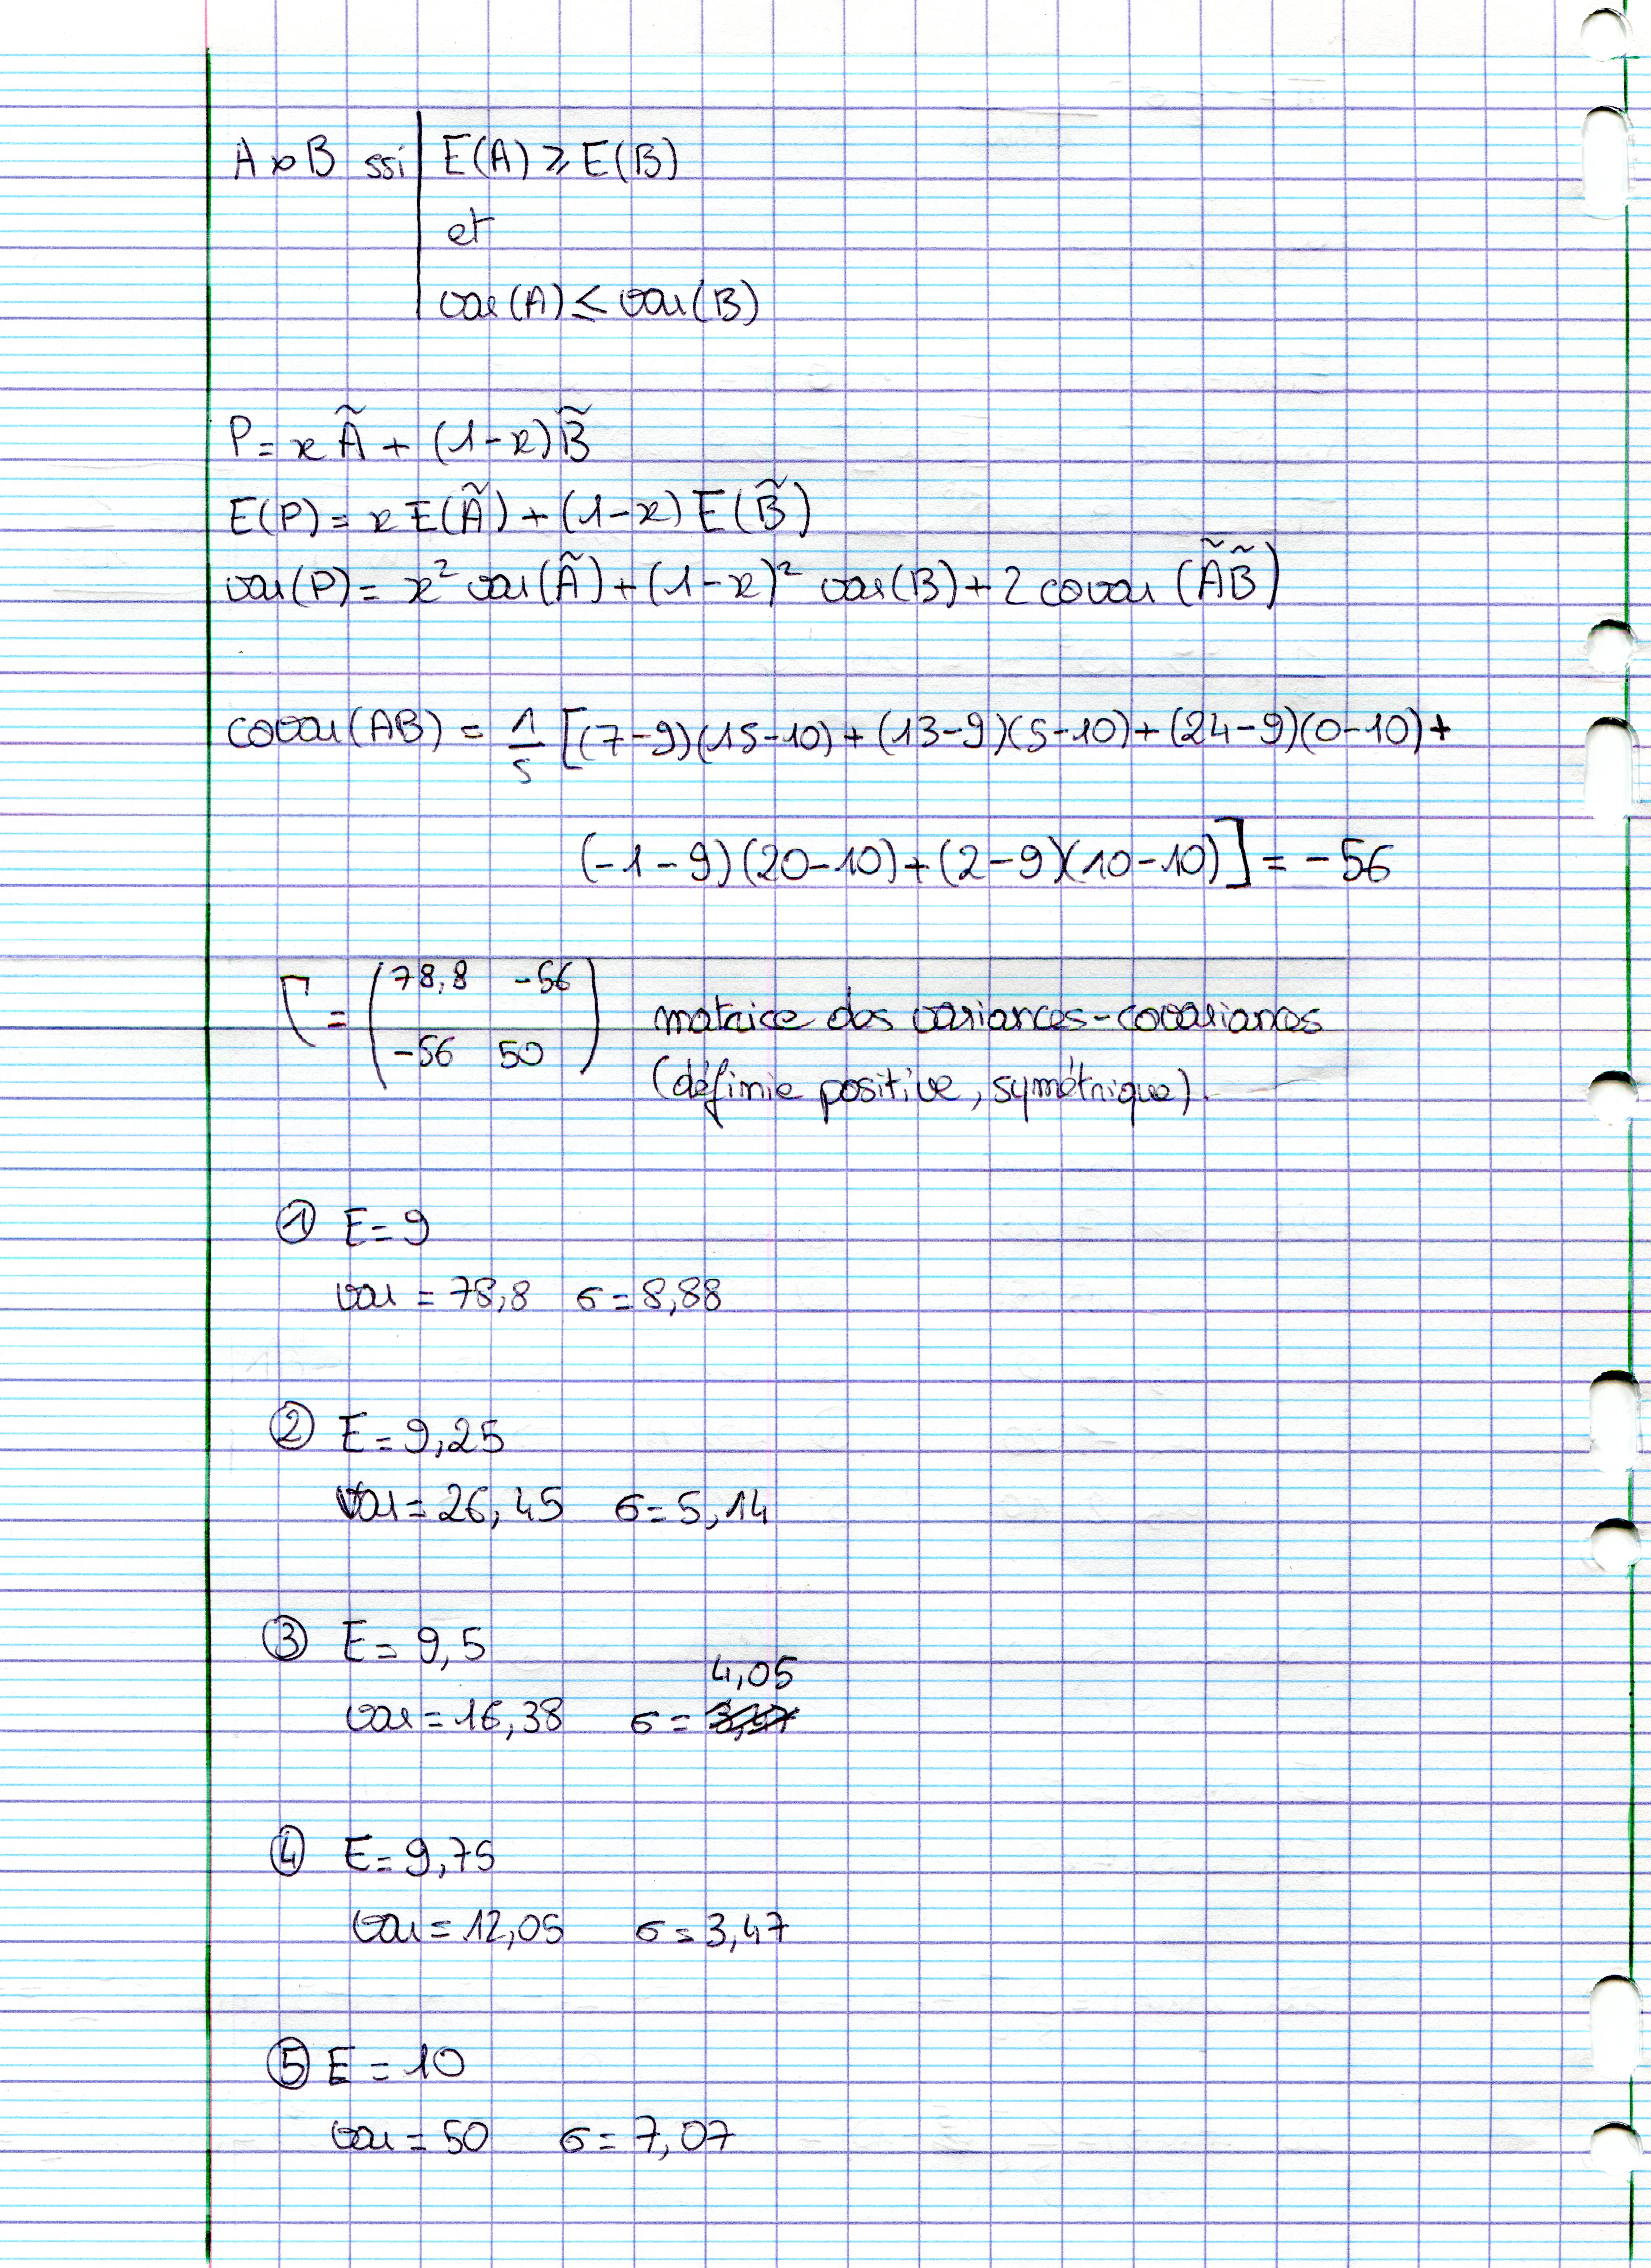 A ≻ B ssi | E(A) ⩾ E(B)
et
var(A) ≤ var(B)
P = x Ã + (1-x) B̃
E(P) = x E(Ã) + (1-x) E(B̃)
var(P) = x² var(Ã) + (1-x)² var(B) + 2 covar (ÃB̃)
covar(AB) = 1/5 [(7-9)(15-10) + (13-9)(5-10) + (24-9)(0-10) +
(-1-9)(20-10) + (2-9)(10-10)] = -56
Γ = ( 78,8 -56
-56 50 )
matrice des variances-covariances
(définie positive, symétrique).
① E = 9
var = 78,8 σ = 8,88
② E = 9,25
var = 26,45 σ = 5,14
③ E = 9,5
4,05
var = 16,38 σ =
④ E = 9,75
var = 12,05 σ = 3,47
⑤ E = 10
var = 50 σ = 7,07